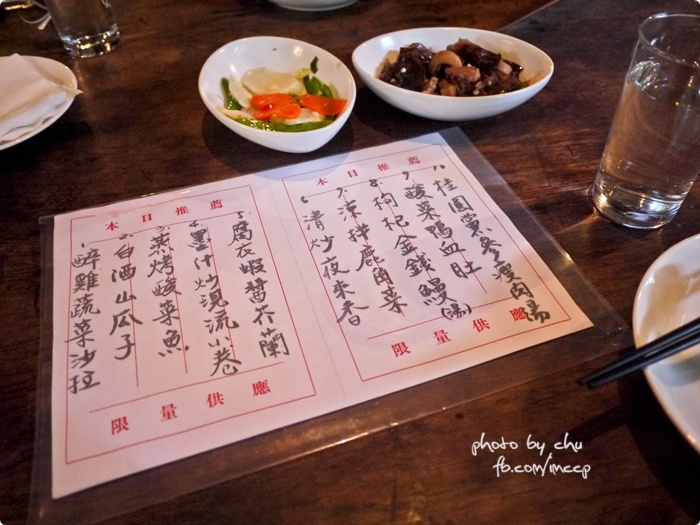 本日推薦
1. 醉雞蔬菜沙拉
2. 白酒山瓜子
3. 蒸烤酸菜魚
4. 墨汁炒現流小卷
5. 腐衣蝦醬芥蘭
限量供應
本日推薦
6. 清炒夜來香
7. 涼拌鹿角菜
8. 枸杞金錢鰻(湯)
9. 酸菜鴨血肚
10. 桂圓黨參瘦肉湯
限量供應
photo by chu
fb.com/imccp